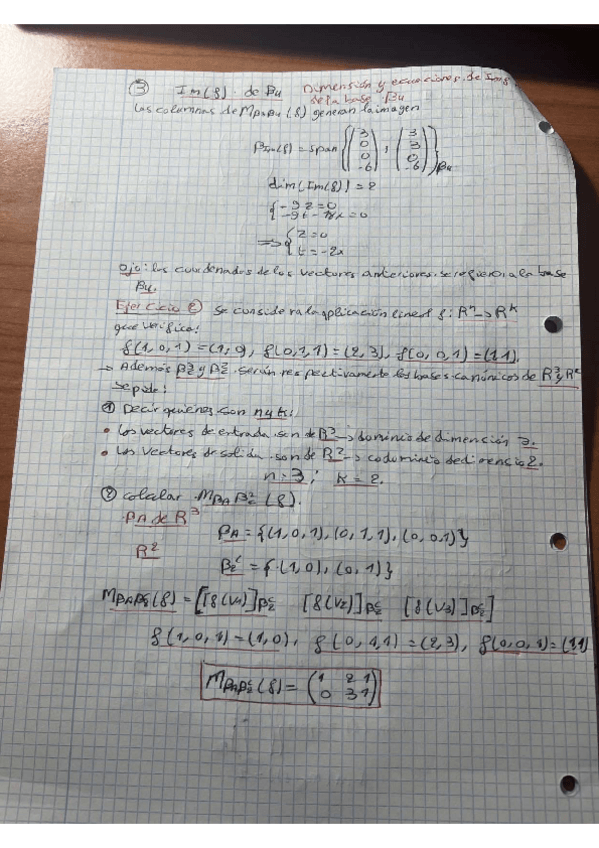 ③ Im(f) de B4 Dimensión y ecuaciones de Img
de la base B4
Las columnas de MB3B4(f) generan la imagen
BIm(f) = span {(3 0 0 -6), (3 3 0 -6)}B4
dim(Im(f)) = 2
{-9z=0
-9t-18x=0
=> {z=0
t=-2x
Ojo: las coordenadas de los vectores anteriores se refieren a la base
B4.
Ejercicio ② Se considera la aplicación lineal f: Rn -> Rk
que verifica:
f(1,0,1)=(1,0), f(0,1,1)=(2,3), f(0,0,1)=(1,1).
-> Además β3c y β2c serán respectivamente las bases canónicas de R3 y R2
Se pide:
① Decir quienes son n y k:
• Los vectores de entrada son de R3 -> dominio de dimensión 3.
• Los vectores de salida son de R2 -> codominio de dimensión 2.
n=3; k=2.
② Calcular MBAB2c(f).
BA de R3
BA = {(1,0,1), (0,1,1), (0,0,1)}
R2
B2c = {(1,0), (0,1)}
MBAB2c(f) = [[f(V1)]B2c [f(V2)]B2c [f(V3)]B2c]
f(1,0,1)=(1,0), f(0,1,1)=(2,3), f(0,0,1)=(1,1)
MBAB2c(f) = (1 2 1
0 3 1)